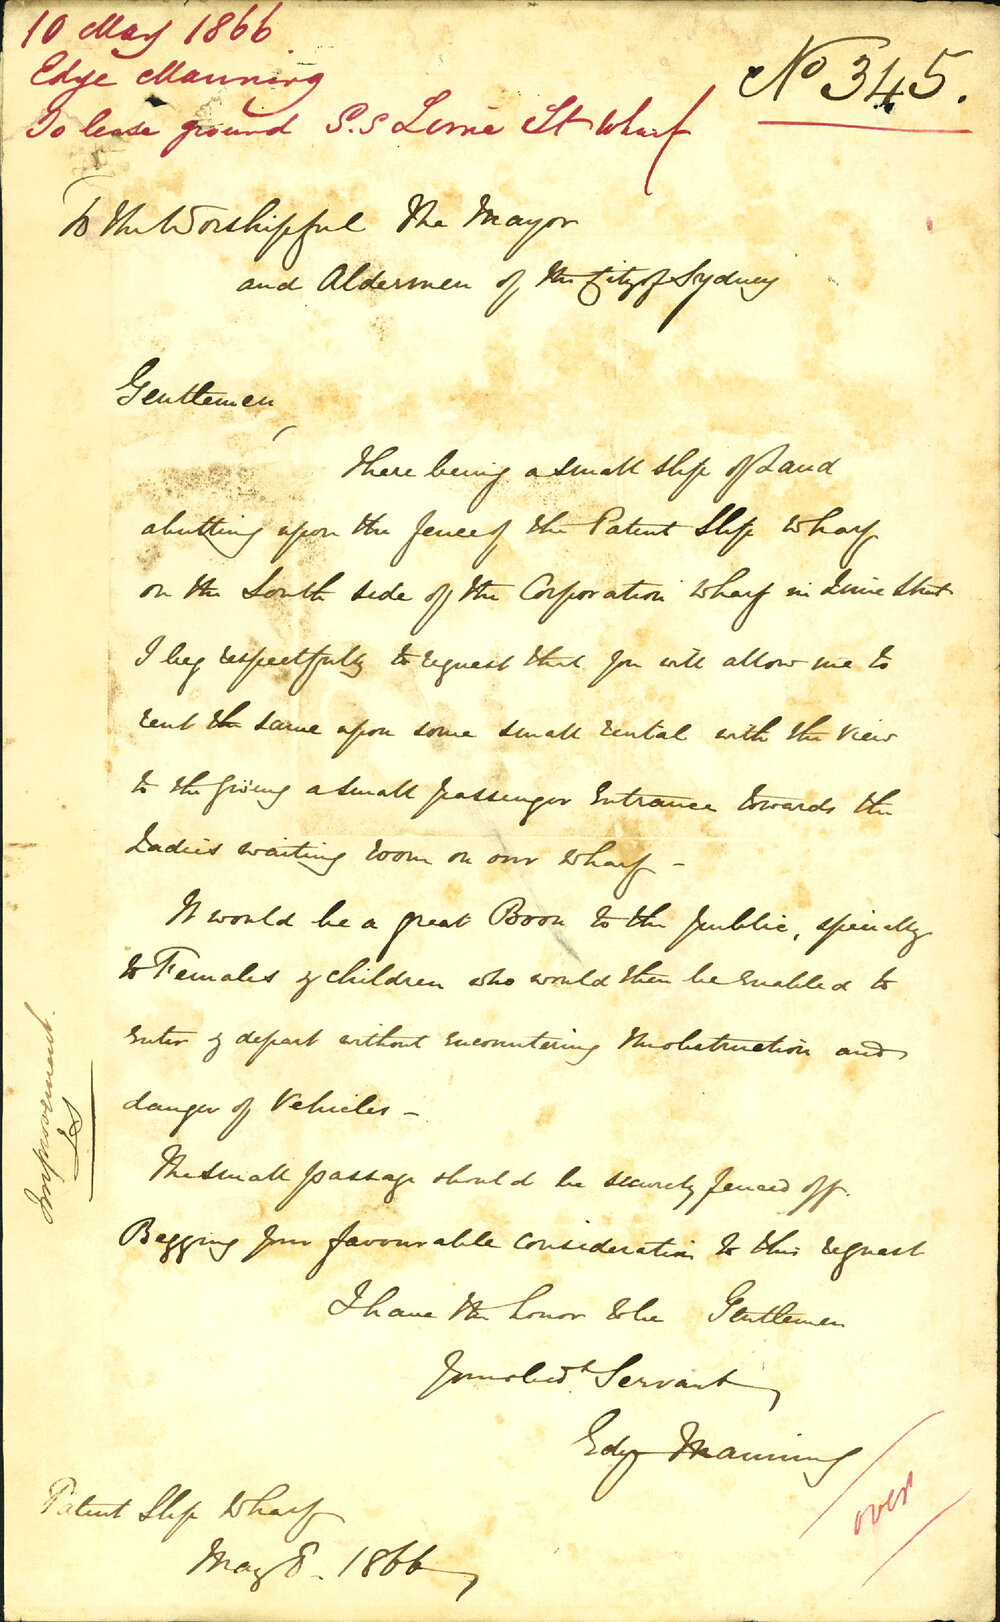 10 May 1866
Edye Manning
To lease ground S.S Lime St Wharf
No 345.
To the Worshipful The Mayor
and Aldermen of the City of Sydney
Gentlemen,
There being a small slip of Land
abutting upon the fence of the Patent Slip Wharf
on the South side of the Corporation Wharf in Lime Street
I beg respectfully to request that you will allow me to
rent the same upon some small rental with the view
to the giving a small passenger Entrance towards the
Ladies waiting room on our Wharf -
It would be a great Boon to the public, specially
to Females & children who would then be Enabled to
Enter & depart without Encountering the obstruction and
danger of Vehicles -
The small passage should be securely fenced off.
Begging your favourable consideration to this request
I have the honor to be Gentlemen
Your obedt Servant
Edye Manning
Patent Slip Wharf
May 8. 1866
Improvement
over